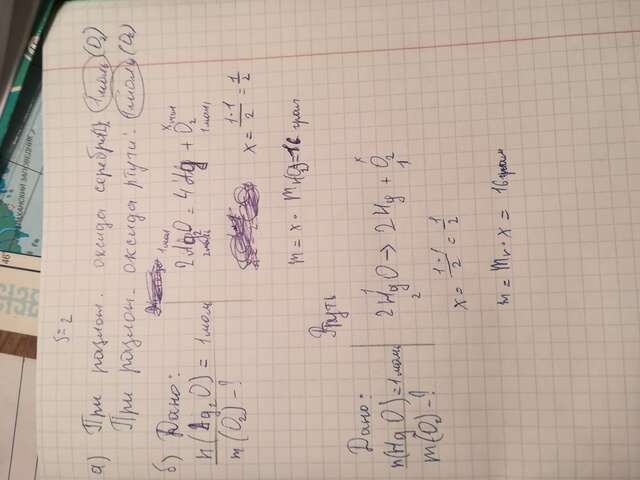 5=2
а) При разлож. оксида серебра 1 моль (O₂)
При разлож. оксида ртути. 1 моль (O₂)
б) Дано:
n(Ag₂O) = 1 моль
m(O₂) - ?
1 мол x мол
2Ag₂O = 4Ag + O₂
2 моль 1 мол
x = 1·1/2 = 1/2
m = x · M(O₂) = 16 грам
Ртуть
Дано:
n(HgO) = 1 моль
m(O₂) - ?
1 x
2HgO → 2Hg + O₂
2 1
x = 1·1/2 = 1/2
m = Mr · x = 16 грам